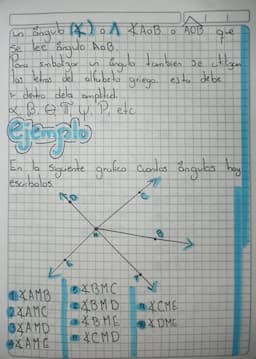 un ángulo (∡) o ∧ ∡AOB o AOB que
se lee ángulo AOB.
Para simbolizar un ángulo también se utilizan
las letras del alfabeto griego. esta debe
ir dentro de la amplitud.
α β, θ π γ, ρ, etc
ejemplo
En la siguiente grafico cuantos ángulos hay
escribolos.
D
C
M
B
E
A
∡AMB
∡AMC
∡AMD
∡AME
∡BMC
∡BMD
∡BME
∡CMD
∡CME
∡DME